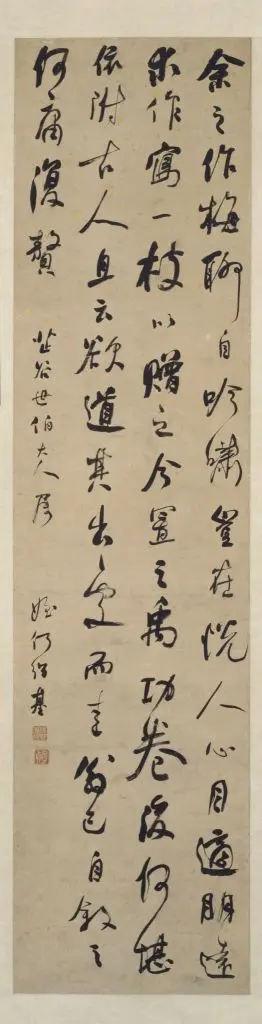 余之作梅聊自吟嘯豈在悅人心目適明遠
求作寫一枝以贈之今置之禹功卷後何堪
依附古人且云欲道其出處而圭翁已自敘之
何庸復贅 芷谷世伯大人屬 姪何紹基